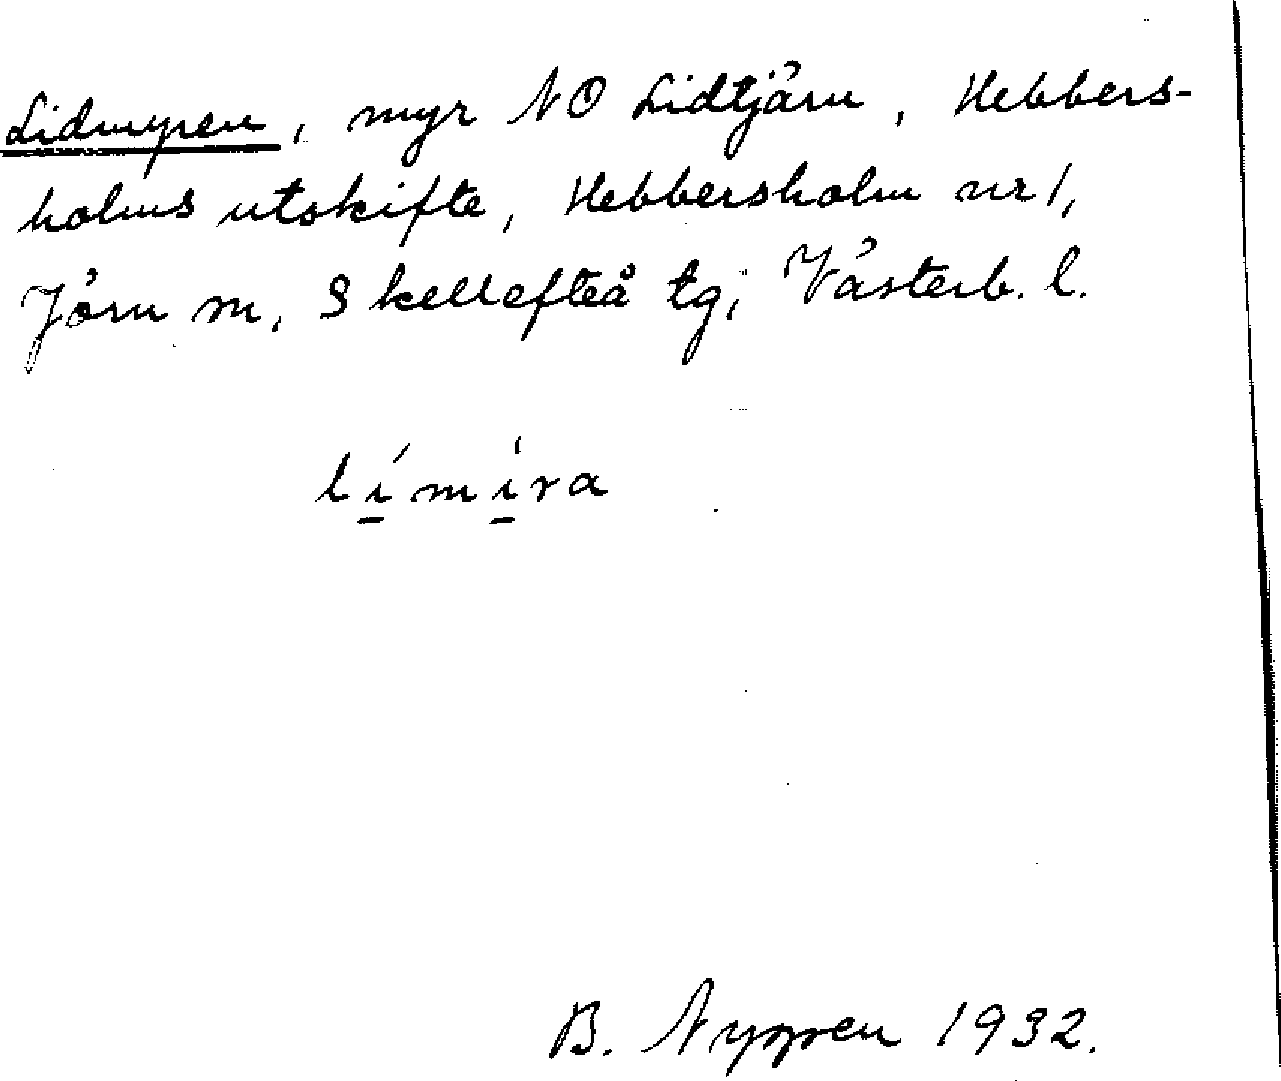 Lidmyren, myr NO Lidtjärn, Hebbers-
holms utskifte, Hebbersholm nr 1,
Jörn sn, Skellefteå tg, Västerb. l.
lí̱mı̱̍ra
B. Nygren 1932.